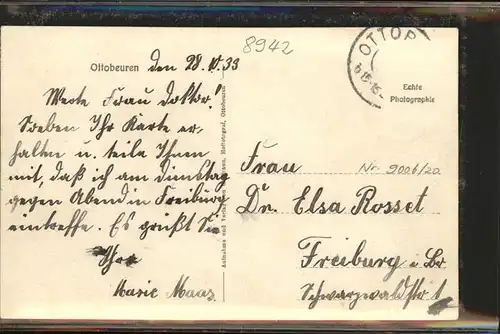 8942
OTTOB
Ottobeuren den 28.IV.33
Werte Frau Doktor!
Soeben Ihr Karte er-
halten u. teile Ihnen
mit, daß ich am Dienstag
gegen Abend in Freiburg
eintreffe. Es grüßt Sie
Ihre
Marie Maas
Echte
Photographie
Frau
Nr 9006/20
Dr. Elsa Rosset
Freiburg i. Br.
Schwarzwaldstr 1
Aufnahme und Verlag